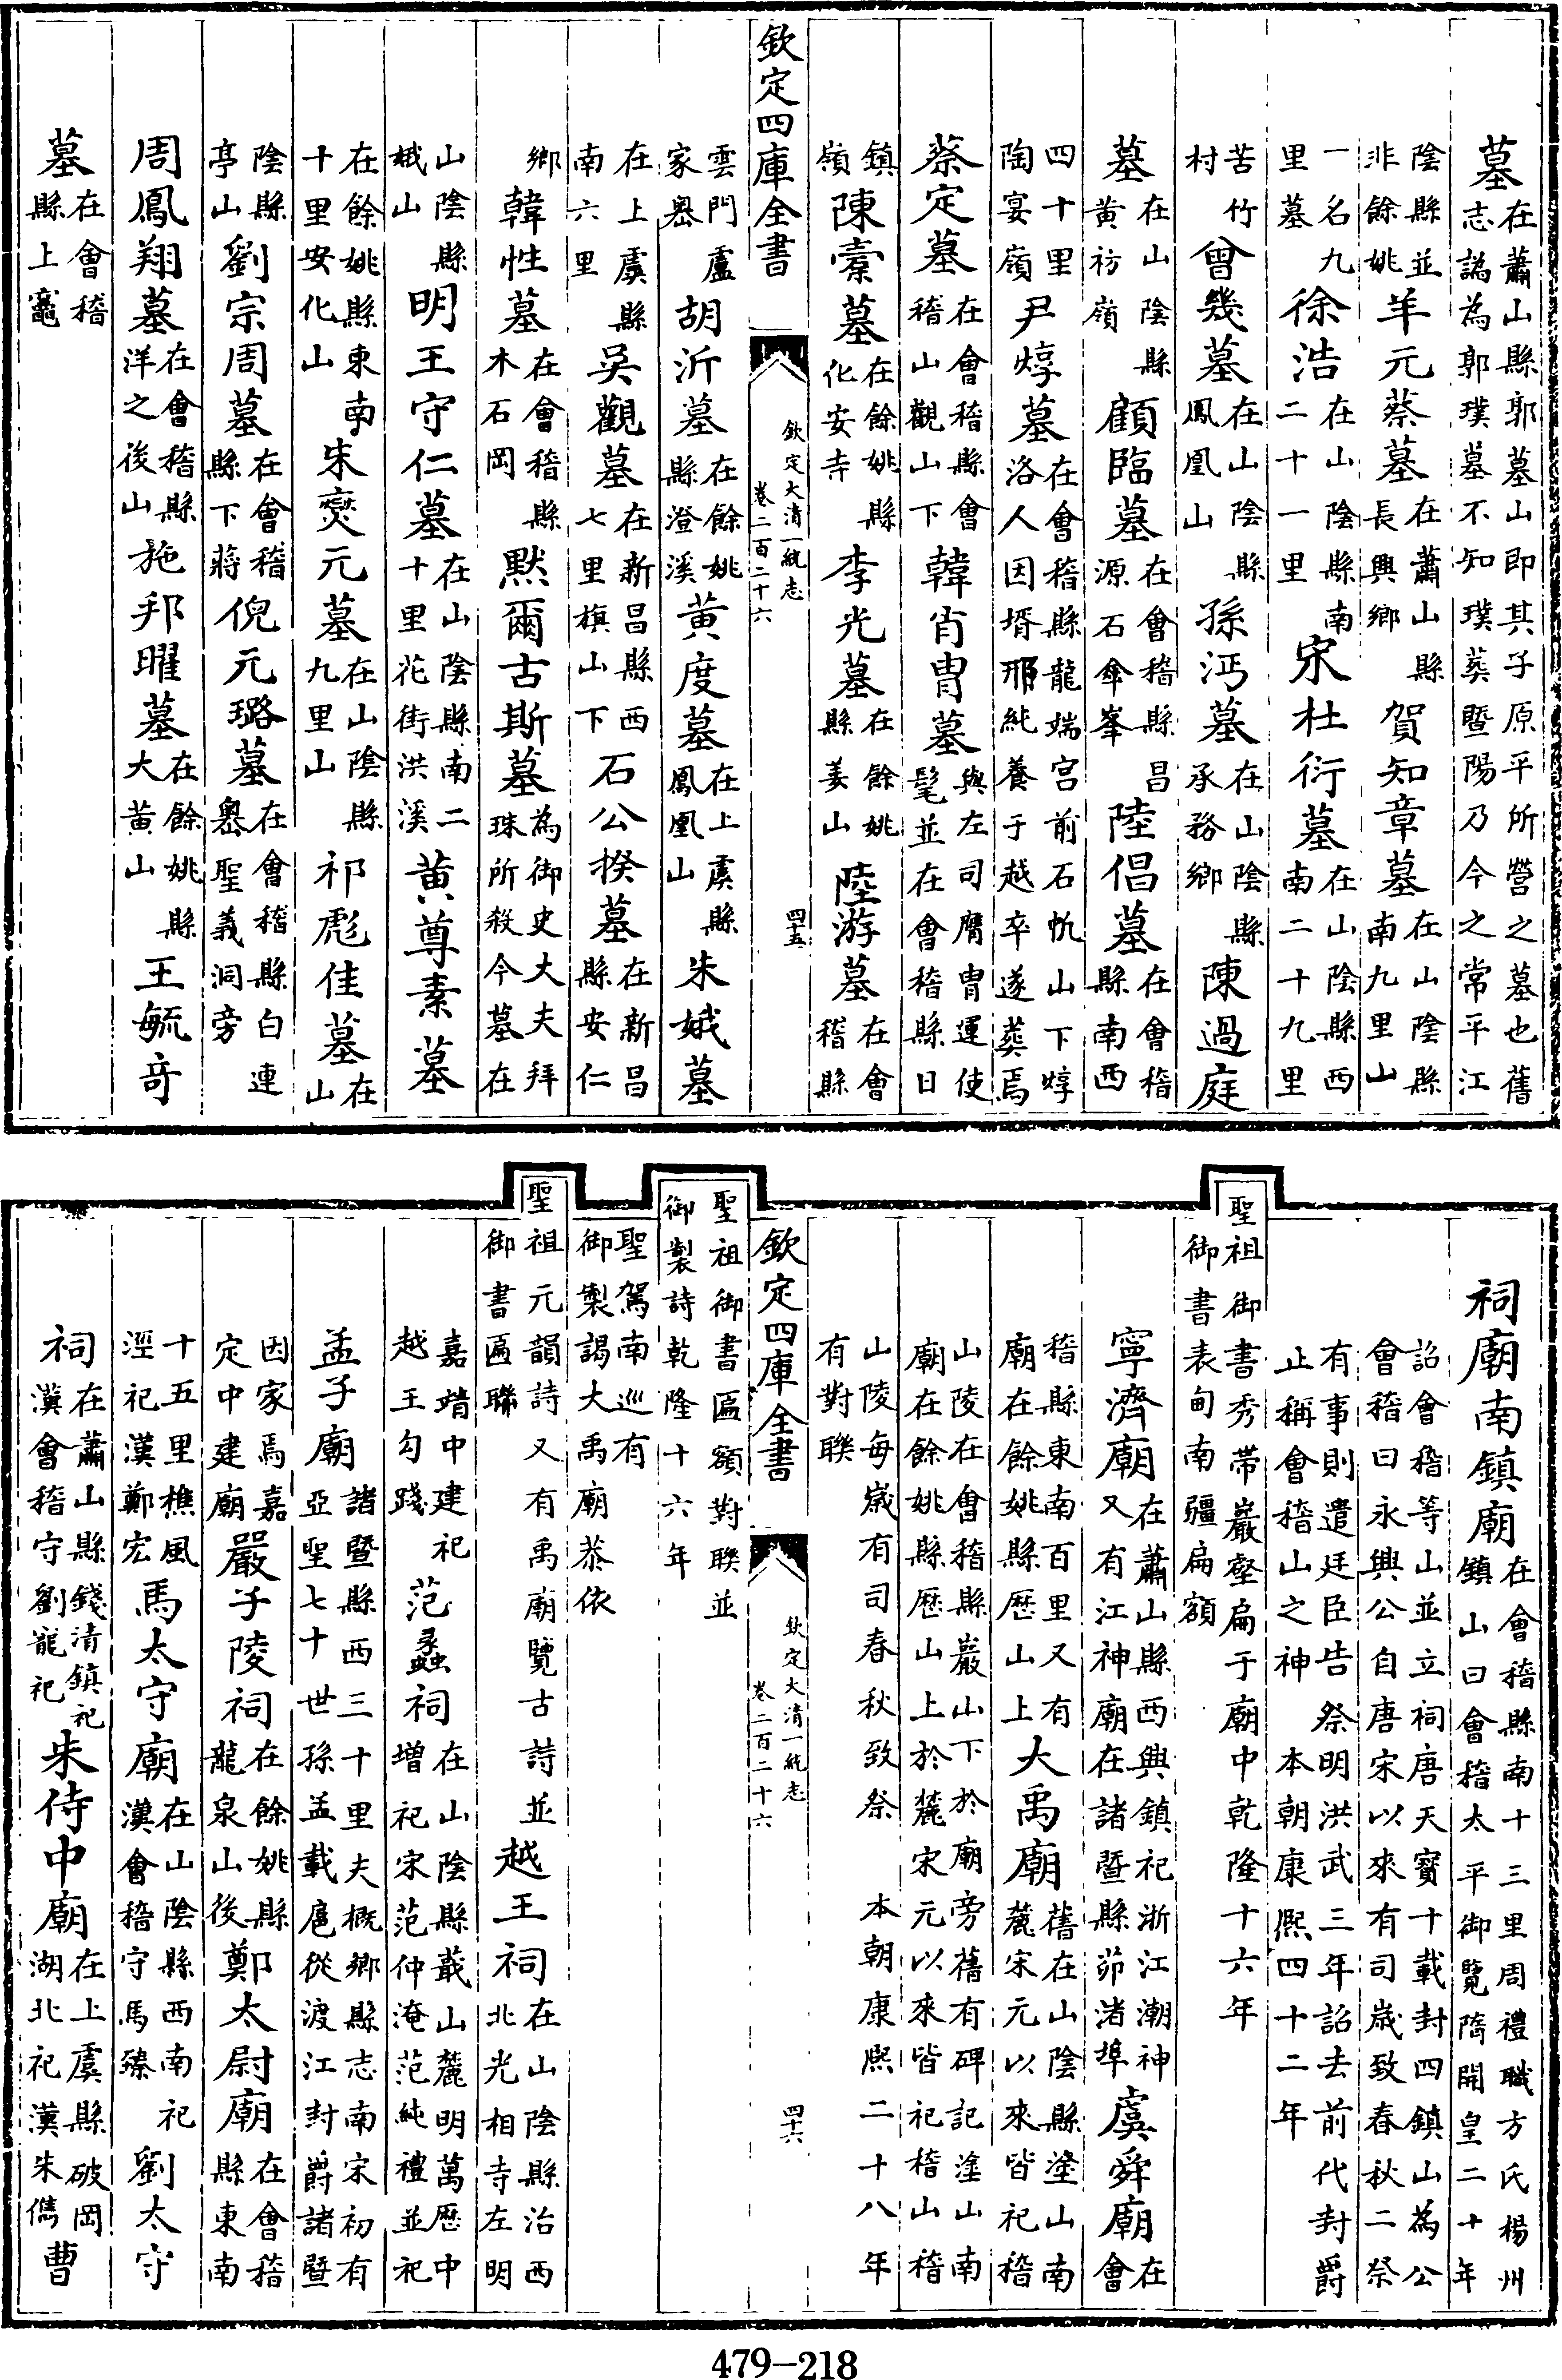 墓在蕭山縣郭墓山即其子原平所營之墓也舊志譌為郭璞墓不知璞葬暨陽乃今之常平江
陰縣並非餘姚羊元蔡墓在蕭山縣長興鄉賀知章墓在山陰縣南九里山
一名九里墓徐浩在山陰縣南二十一里宋杜衍墓在山陰縣西南二十九里
苦竹村曾幾墓在山陰縣鳳凰山孫沔墓在山陰縣承務鄉陳過庭
墓在山陰縣黄祊嶺顧臨墓在會稽縣昌源石傘峯陸倡墓在會稽縣南西
四十里陶宴嶺尹焞墓在會稽縣龍端宮前石帆山下焞洛人因壻邢純養于越卒遂葬焉
蔡定墓在會稽縣會稽山觀山下韓肖胄墓與左司膺胄運使髦並在會稽縣日
鎮嶺陳橐墓在餘姚縣化安寺李光墓在餘姚縣姜山陸游墓在會稽縣
欽定四庫全書 欽定大清一統志 卷二百二十六 四十五
雲門盧家嶴胡沂墓在餘姚縣澄溪黄度墓在上虞縣鳳凰山朱娥墓
在上虞縣南六里吳觀墓在新昌縣西七里旗山下石公揆墓在新昌縣安仁
鄉韓性墓在會稽縣木石岡默爾古斯墓為御史大夫拜珠所殺今墓在
山陰縣娥山明王守仁墓在山陰縣南二十里花街洪溪黄尊素墓
在餘姚縣東南十里安化山朱燮元墓在山陰縣九里山祁彪佳墓在山
陰縣亭山劉宗周墓在會稽縣下蔣倪元璐墓在會稽縣白連嶴聖義洞旁
周鳳翔墓在會稽縣洋之後山施邦曜墓在餘姚縣大黄山王毓奇
墓在會稽縣上竈
祠廟南鎮廟在會稽縣南十三里周禮職方氏楊州鎮山曰會稽太平御覽隋開皇二十年
詔會稽等山並立祠唐天寶十載封四鎮山為公會稽曰永興公自唐宋以來有司歲致春秋二祭
有事則遣廷臣告祭明洪武三年詔去前代封爵止稱會稽山之神本朝康熙四十二年
聖祖御書秀帶巖壑扁于廟中乾隆十六年御書表甸南疆扁額
寧濟廟在蕭山縣西興鎮祀浙江潮神又有江神廟在諸暨縣茆渚埠虞舜廟在會
稽縣東南百里又有廟在餘姚縣歷山上大禹廟舊在山陰縣塗山南麓宋元以來皆祀稽
山陵在會稽縣巖山下於廟旁舊有碑記塗山南廟在餘姚縣歷山上於麓宋元以來皆祀稽山稽
山陵每歲有司春秋致祭本朝康熙二十八年有對聯
欽定四庫全書 欽定大清一統志 卷二百二十六 四十六
聖祖御書匾額對聯並御製詩乾隆十六年
聖駕南巡有御製謁大禹廟恭依
聖祖元韻詩又有禹廟覽古詩並御書匾聯越王祠在山陰縣治西北光相寺左明
嘉靖中建祀越王勾踐范蠡祠在山陰縣蕺山麓明萬歷中增祀宋范仲淹范純禮並祀
孟子廟諸暨縣西三十里夫概鄉縣志南宋初有亞聖七十世孫孟載扈從渡江封爵諸暨
因家焉嘉定中建廟嚴子陵祠在餘姚縣龍泉山後鄭太尉廟在會稽縣東南
十五里樵風涇祀漢鄭宏馬太守廟在山陰縣西南祀漢會稽守馬臻劉太守
祠在蕭山縣錢清鎮祀漢會稽守劉寵祀朱侍中廟在上虞縣破岡湖北祀漢朱儁曹
479-218